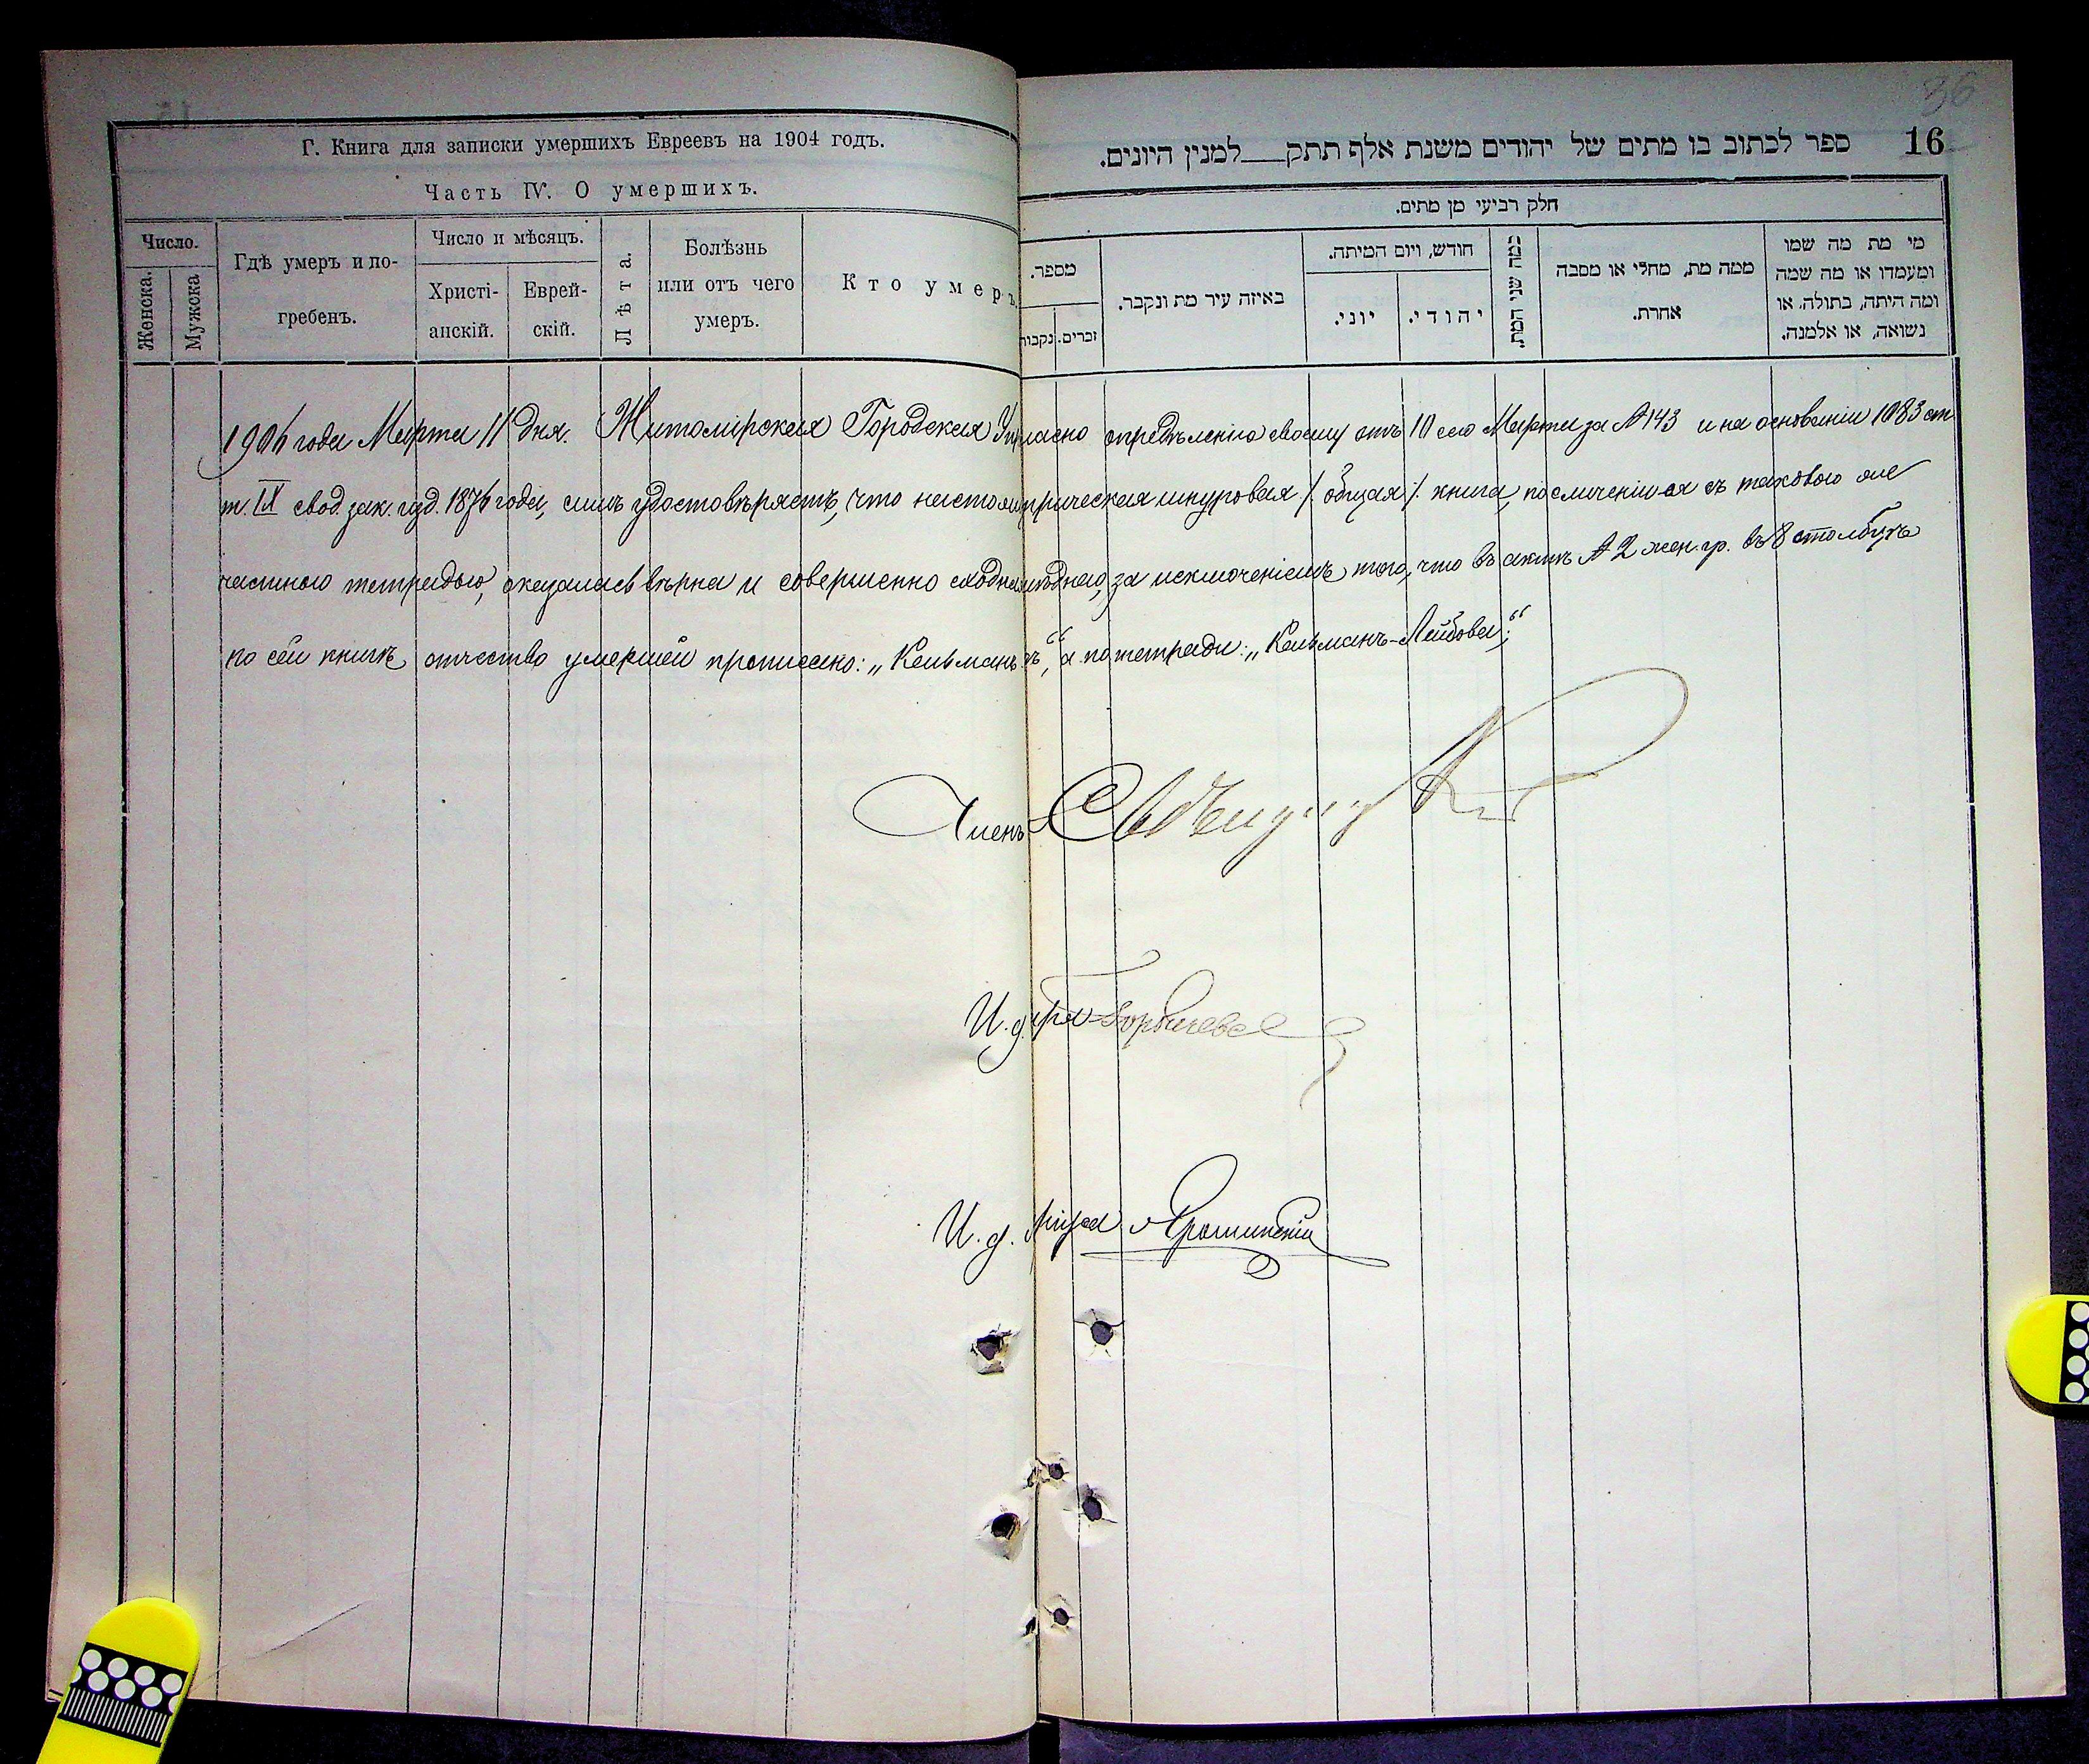 Г. Книга для записки умершихъ Евреевъ на 1904 годъ.
Часть IV. О умершихъ.
Число.
Женска.
Мужска
Гдѣ умеръ и по-
гребенъ.
Число и мѣсяцъ.
Христі-
анскій.
Еврей-
скій.
Лѣта.
Болѣзнь
или отъ чего
умеръ.
Кто умеръ
36
16
ספר לכתוב בו מתים של יהודים משנת אלף תתק___למנין היונים.
חלק רביעי מן מתים.
מספר.
זכרים.
נקבות
באיזה עיר מת ונקבר.
חודש, ויום המיתה.
יוני.
יהודי.
כמה שני המת.
ממה מת, מחלי או מסבה
אחרת.
מי מת מה שמו
ומעמדו או מה שמה
ומה היתה, בתולה, או
נשואה, או אלמנה.
1906 года Марта 11 дня. Житомірская Городская Уп ласно опредѣленію своему отъ 10 сего Марта за № 143 и на основаніи 1083 ст
т. IX свод. зак. изд. 1876 года, симъ удостовѣряетъ, что настоящ рическая шнуровая /общая/ книга, по сличеніи ея съ таковою же
частною тетрадью, оказалась вѣрна и совершенно сходна за исключеніемъ того, что въ актѣ № 2 жен. гр. въ 8 столбцѣ
по сей книгѣ отчество умершей прописано: „Кельман ъ“, а по тетради: „Кельманъ-Лейбова“;
Членъ
И. д.
И. д.